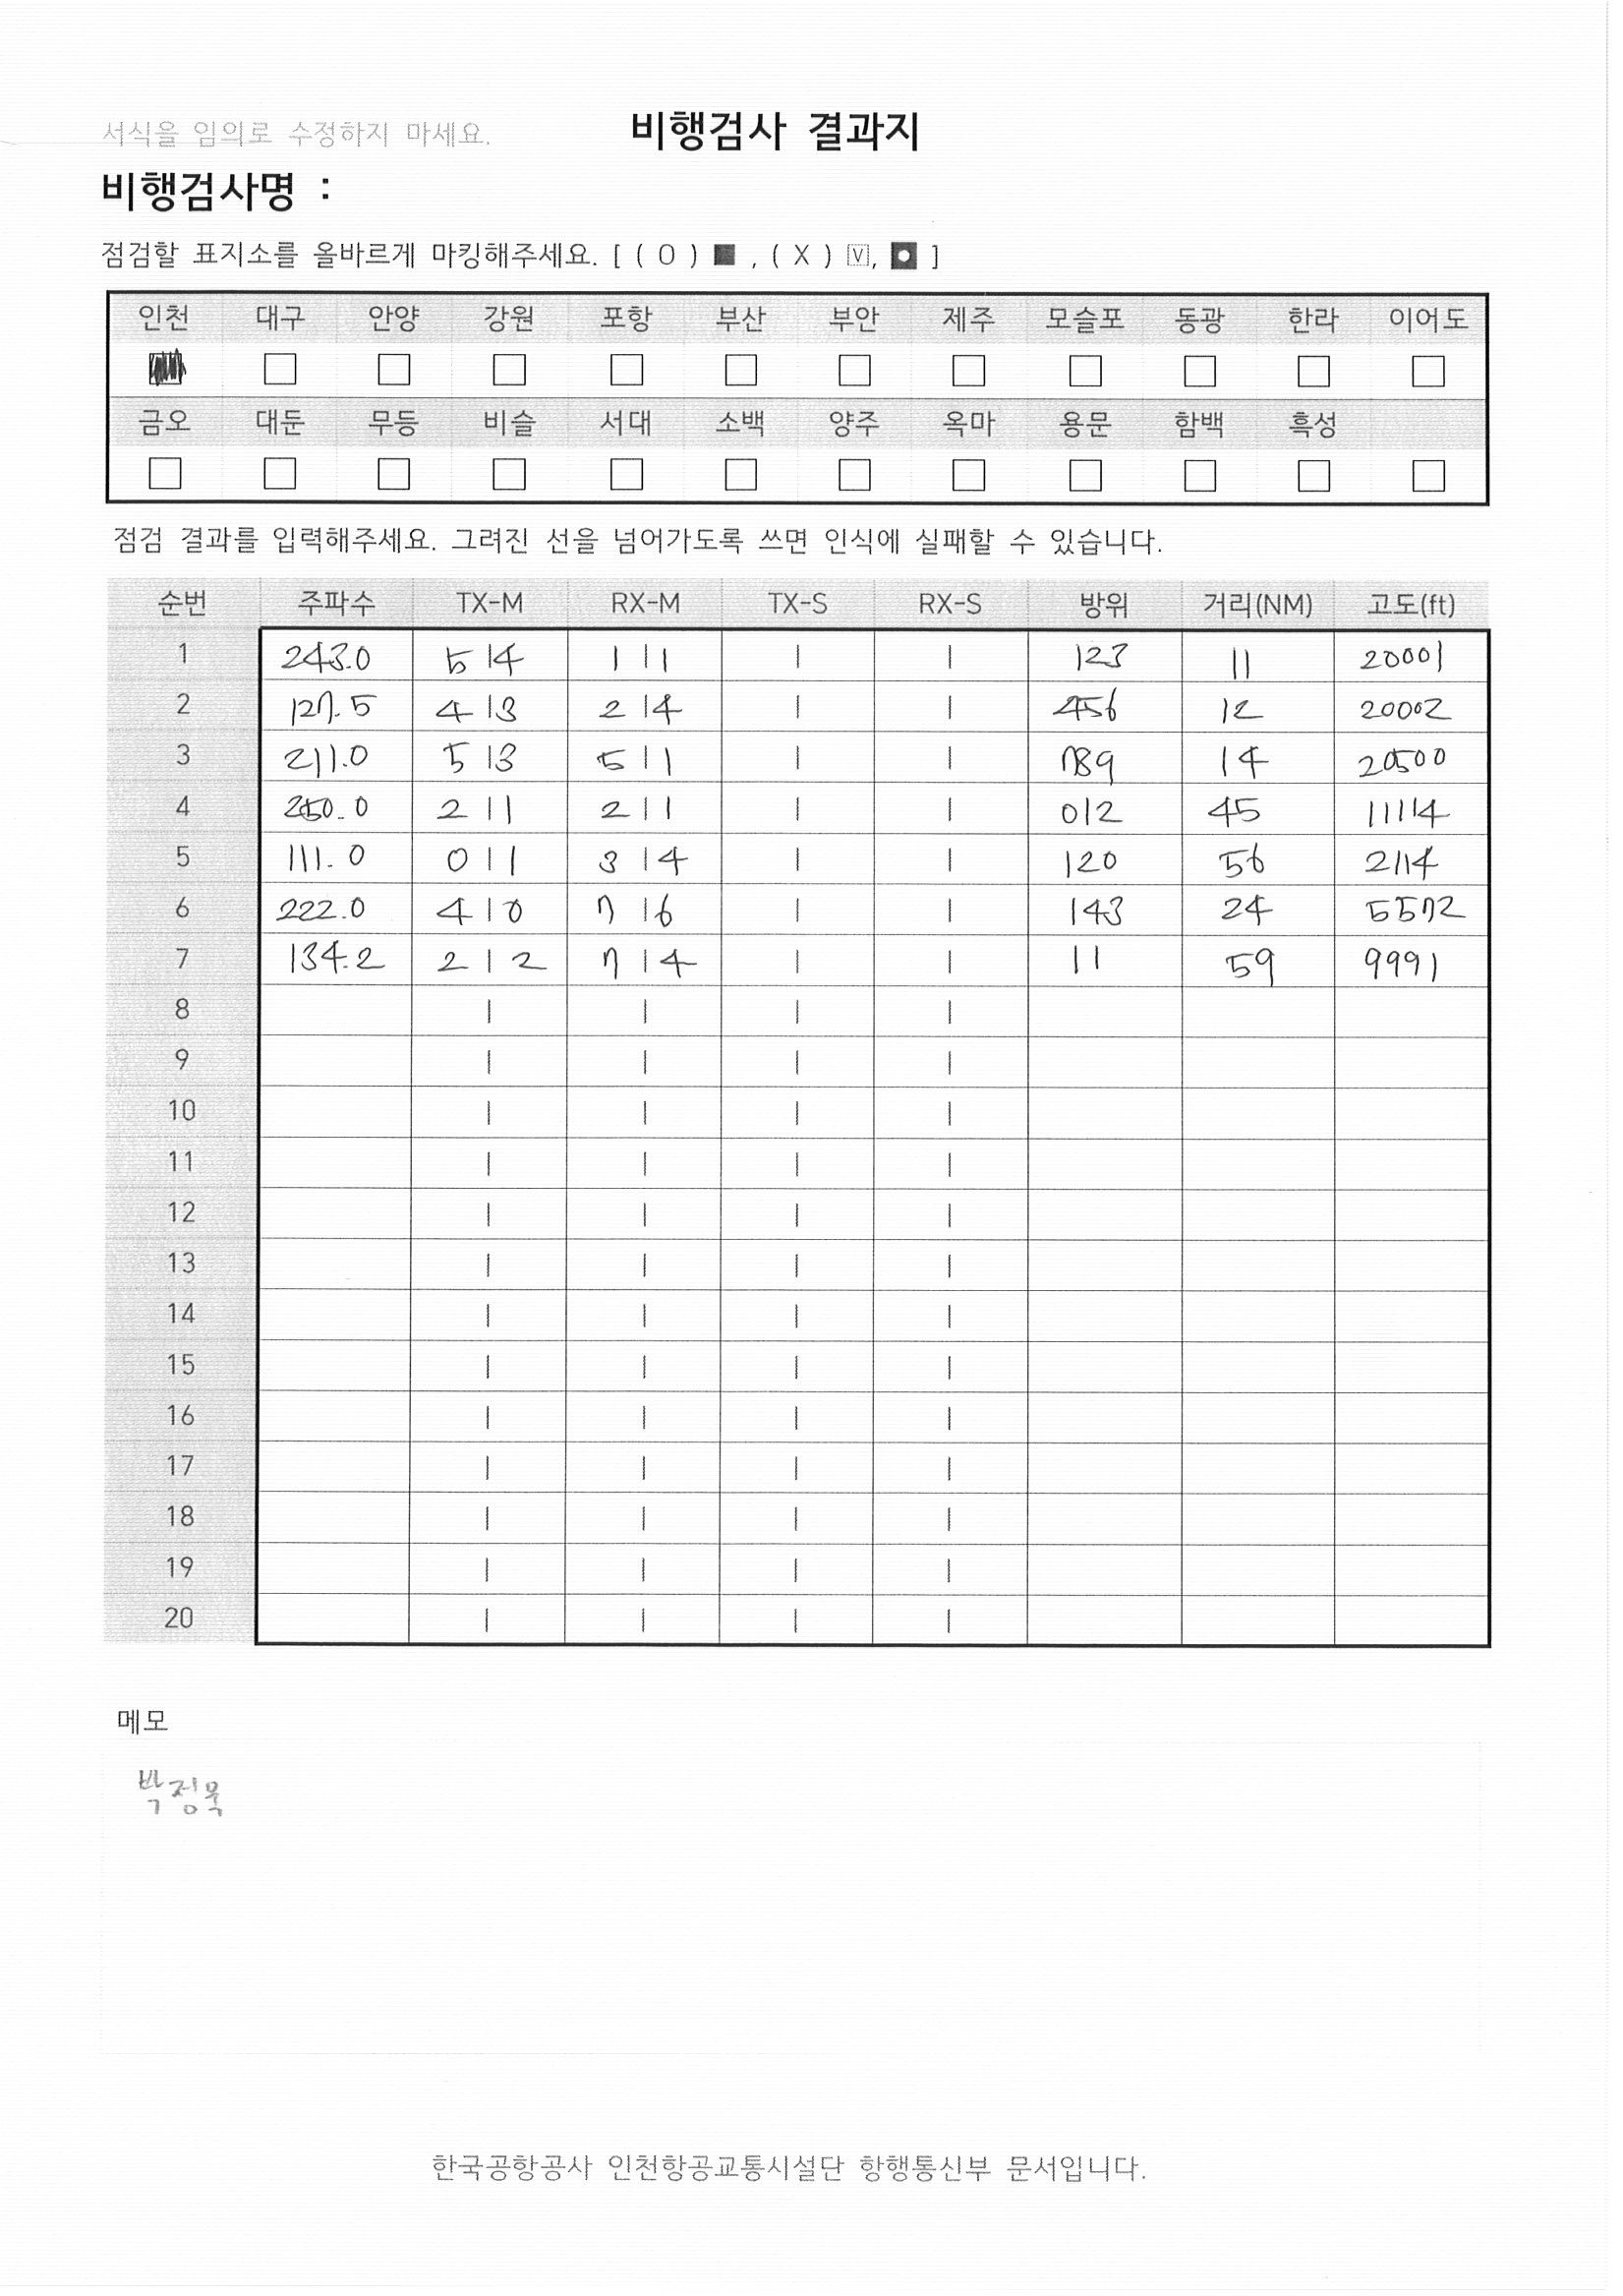 서식을 임의로 수정하지 마세요. 비행검사 결과지
비행검사명 :
점검할 표지소를 올바르게 마킹해주세요. [ ( O ) ■ , ( X ) V, ]
인천 대구 안양 강원 포항 부산 부안 제주 모슬포 동광 한라 이어도
금오 대둔 무등 비슬 서대 소백 양주 옥마 용문 함백 흑성
점검 결과를 입력해주세요. 그려진 선을 넘어가도록 쓰면 인식에 실패할 수 있습니다.
순번 주파수 TX-M RX-M TX-S RX-S 방위 거리(NM) 고도(ft)
1 243.0 5 | 4 1 | 1 | | 123 11 20001
2 127.5 4 | 3 2 | 4 | | 456 12 20002
3 211.0 5 | 3 5 | 1 | | 789 14 20500
4 250.0 2 | 1 2 | 1 | | 012 45 11114
5 111.0 0 | 1 3 | 4 | | 120 56 2114
6 222.0 4 | 0 7 | 6 | | 143 24 5572
7 134.2 2 | 2 7 | 4 | | 11 59 9991
8 | | | |
9 | | | |
10 | | | |
11 | | | |
12 | | | |
13 | | | |
14 | | | |
15 | | | |
16 | | | |
17 | | | |
18 | | | |
19 | | | |
20 | | | |
메모
박정욱
한국공항공사 인천항공교통시설단 항행통신부 문서입니다.